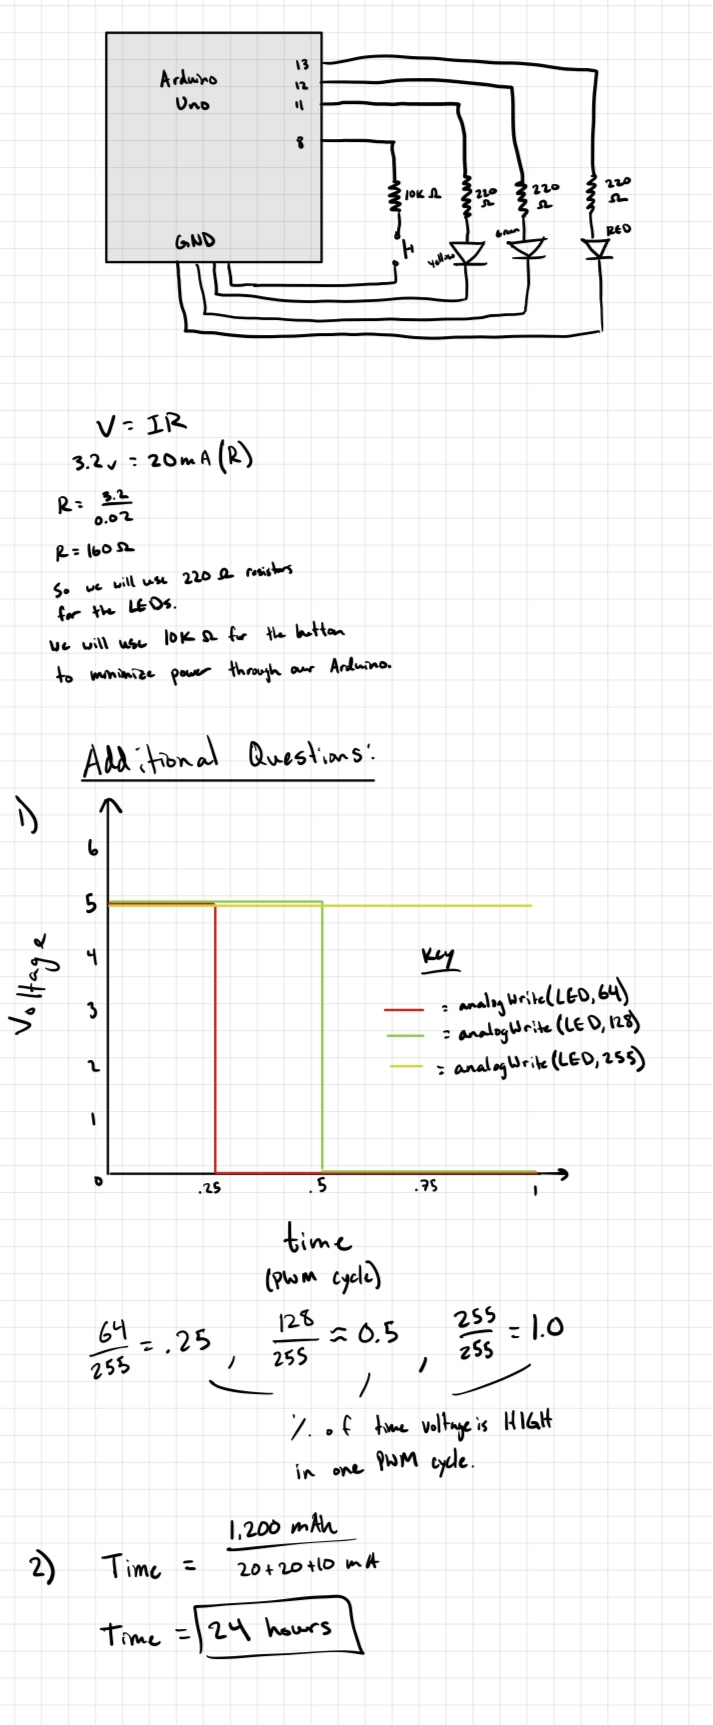 Arduino
Uno
13
12
11
8
GND
10K Ω
220
Ω
220
Ω
220
Ω
Yellow
Green
RED
V = IR
3.2v = 20mA (R)
R = 3.2
0.02
R = 160 Ω
So we will use 220 Ω resistors
for the LEDs.
We will use 10K Ω for the button
to minimize power through our Arduino.
Additional Questions:
1)
Voltage
6
5
4
3
2
1
0
.25
.5
.75
1
Key
= analogWrite(LED, 64)
= analogWrite(LED, 128)
= analogWrite(LED, 255)
time
(PWM cycle)
64/255 = .25 , 128/255 ≈ 0.5 , 255/255 = 1.0
% of time voltage is HIGH
in one PWM cycle.
2) Time = 1,200 mAh
20+20+10 mA
Time = 24 hours